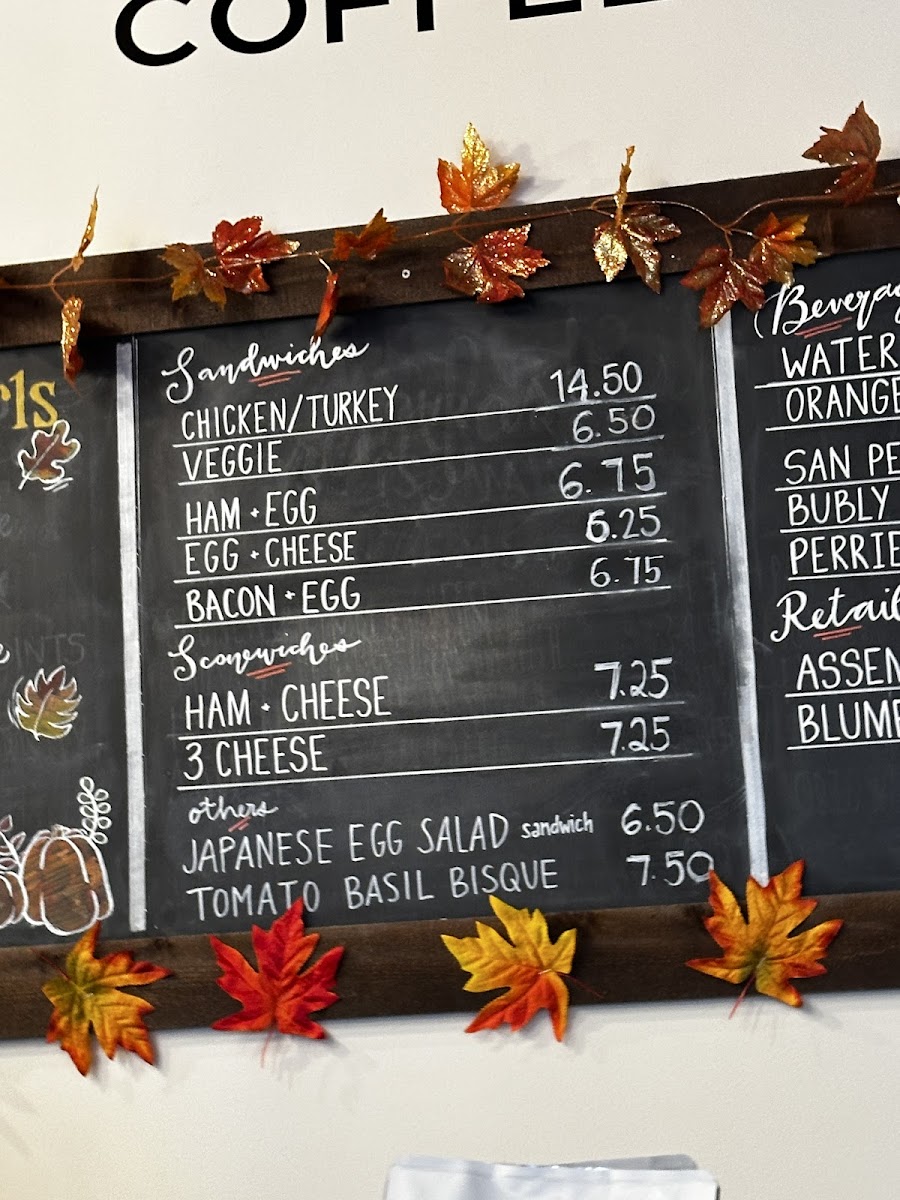 COFFEE
Sandwiches
CHICKEN/TURKEY 14.50
VEGGIE 6.50
HAM + EGG 6.75
EGG + CHEESE 6.25
BACON + EGG 6.75
Sconewiches
HAM + CHEESE 7.25
3 CHEESE 7.25
others
JAPANESE EGG SALAD sandwich 6.50
TOMATO BASIL BISQUE 7.50
rls
INTS
Beverag
WATER
ORANGE
SAN PE
BUBLY
PERRIE
Retail
ASSEN
BLUME